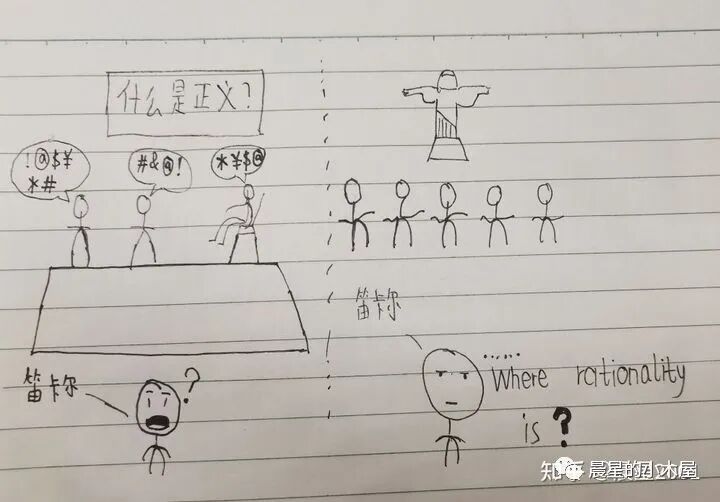 什么是正义?
!@$¥
*#
#&@!
*¥$@
笛卡尔
?
笛卡尔
......
Where rationality
is ?
知乎
晨星的小木屋